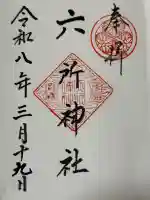 奉拝
六所神社
令和八年三月十九日